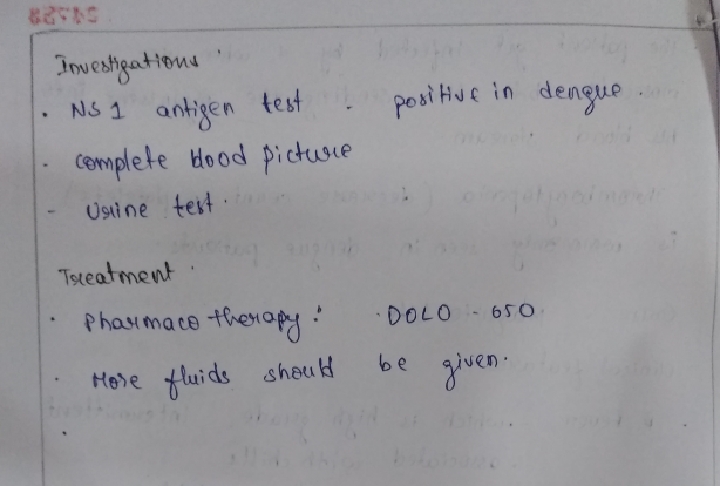 Investigations
. NS 1 antigen test - positive in dengue.
. complete blood picture
- Urine test.
Treatment
. Pharmaco therapy: DOLO - 650
. More fluids should be given.